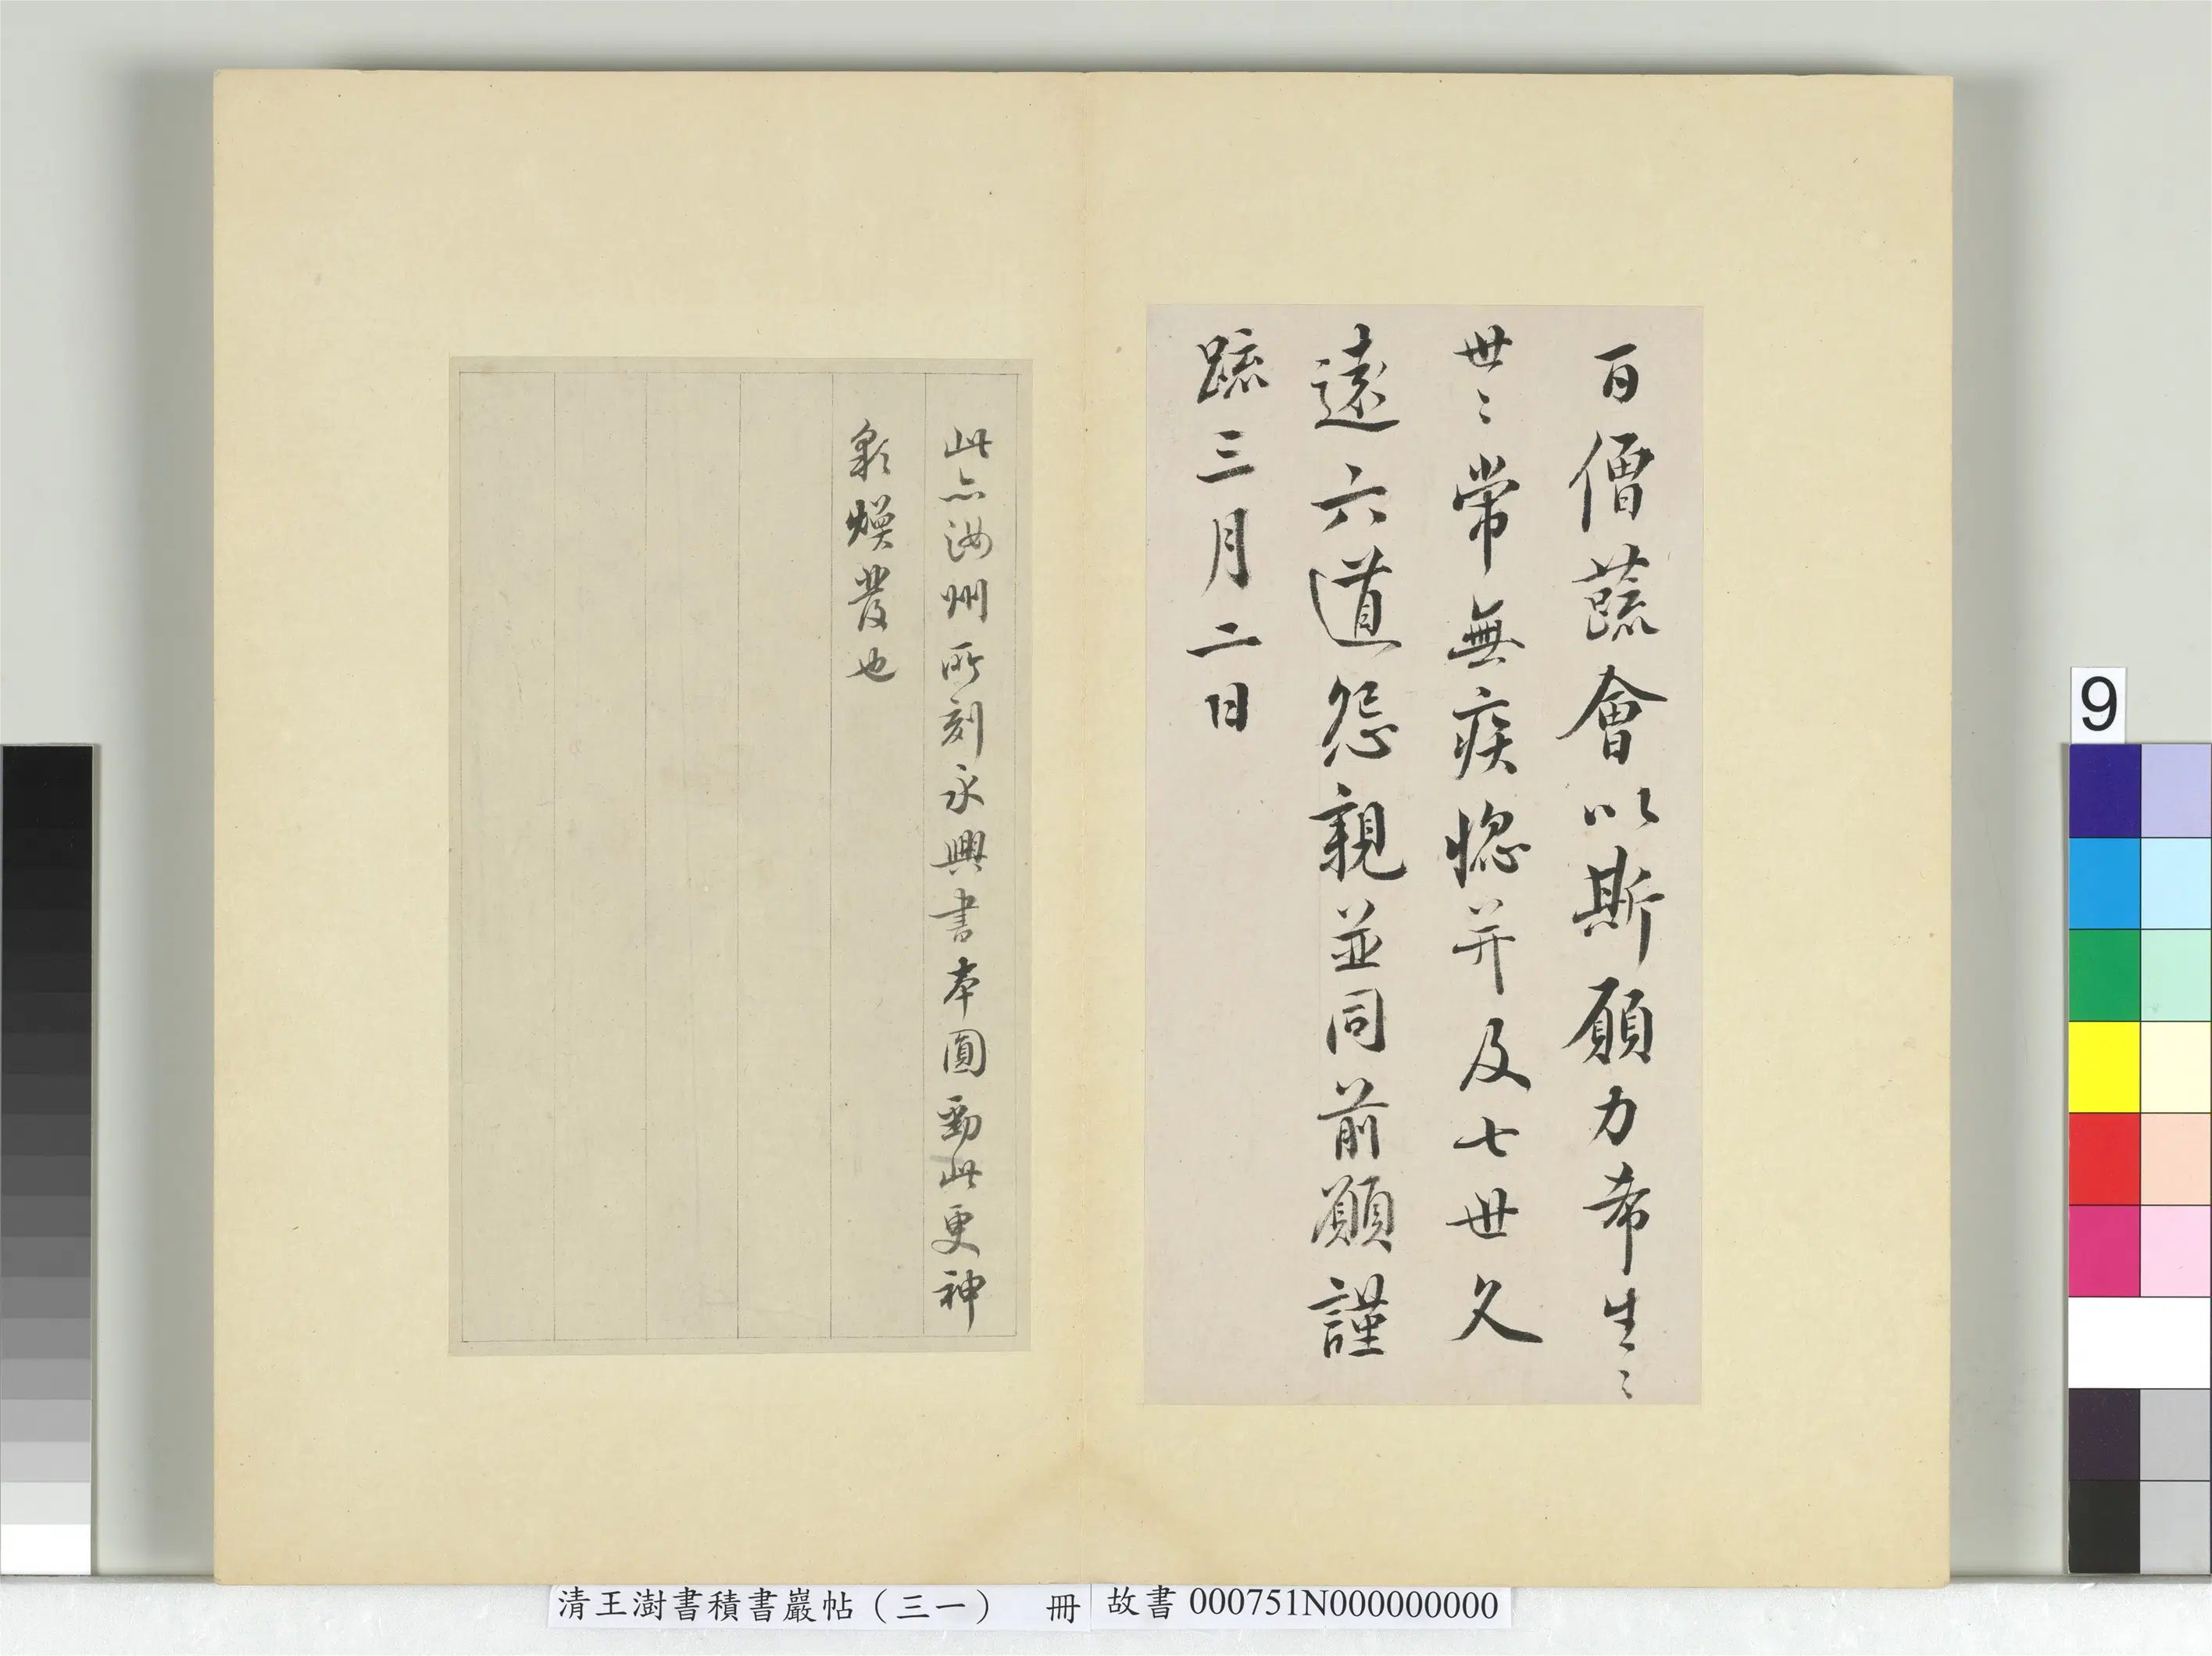 百僧蔬會以斯願力希生〻
世〻常無疾惱并及七世久
遠六道怨親並同前願謹
疏三月二日
此亦汝州所刻永興書本圓勁此更神
彩煥發也
清王澍書積書巖帖（三一） 冊
故書 000751N000000000
9